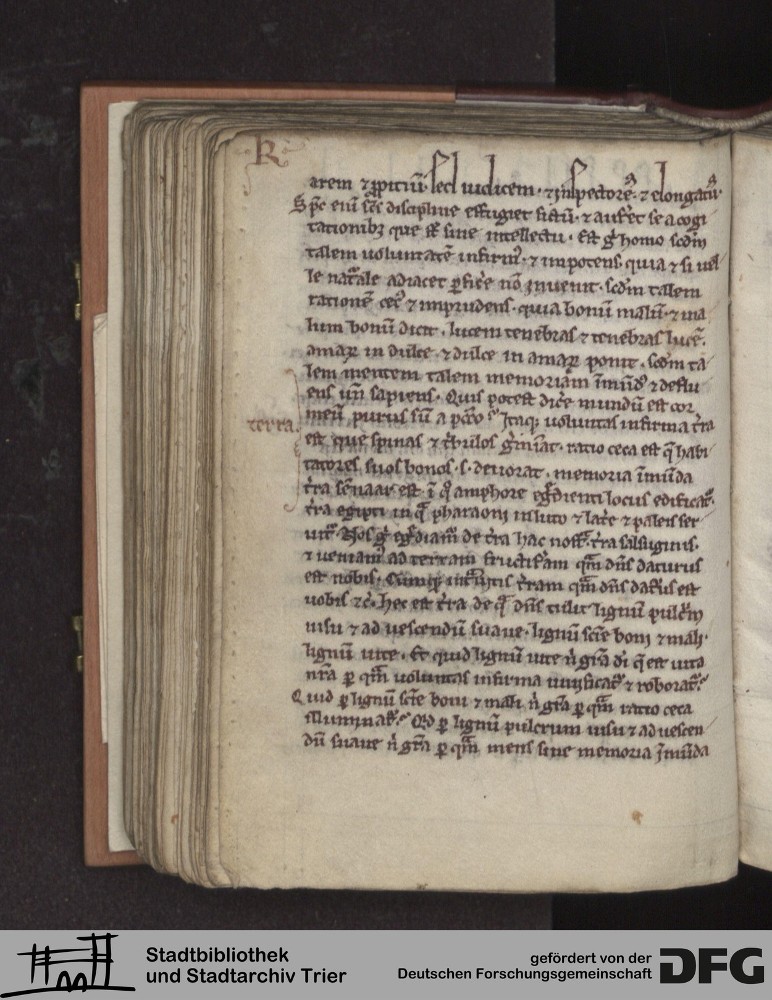 R
arem ⁊ ꝓpiciū. sed iudicem. ⁊ inspectorē. ⁊ elongatū.
Sp̄c eni͂ sc̄s discipline effugiet fictū. ⁊ auferet se a cogi
tationibꝫ que st̄ sine intellectu. Est gͦ homo scdm̄
talem uoluntatē infirmꝰ. ⁊ impotens. quia ⁊ si uel
le nat͛ale adiacet ꝑfic̓e nō inuenit. scdm̄ talem
rationē cecꝰ ⁊ imprudens. quia bonū malū. ⁊ ma
lum bonū dicit. lucem tenebras ⁊ tenebras lucē.
amaꝝ in dulce. ⁊ dulce in amaꝝ ponit. scdm̄ ta
lem mentem talem memoriam īmūdꝰ ⁊ deflu
ens sapiens. Quis potest dic̓e mundū est cor
terra.
meū purus sū a pccō. Itaqꝫ uoluntas infirma t̓ra
est que spinas ⁊ t̓bulos g̓minat. ratio ceca est q̄ habi
tatores suos bonos .s. deuorat. memoria īmūda
t̓ra sennaar est. ī qͣ amphore egͥdienti locus edificat᷑.
t̓ra egipti in qͣ pharaoni in luto ⁊ lat̓e ⁊ paleis ser
uit᷑. Nos gͦ egͥdiam᷑ de t̓ra hac nost͛ t̓ra salsuginis.
⁊ ueniamꝰ ad terram fructif̓am qͣm dn̄s daturus
est nobis. t̓ram qͣm dn̄s datꝰus est
uobis ⁊c̄. hec est t̓ra de qͣ dn̄s tulit lignū pulc̓m
uisu ⁊ ad uescendū suaue. lignū scīe boni ⁊ mali.
lignū uite. Et quid lignū uite n̄ grā dī q̄ est uita
nr̄a ꝑ qͣm uoluntas infirma uiuificat᷑ ⁊ roborat᷑.
Quid ꝑ lignū scīe boni ⁊ mali n̄ grā ꝑ qͣm ratio ceca
illuminat᷑. Qͥd ꝑ lignū pulcrum uisu ⁊ ad uescen
dū suaue n̄ grā ꝑ qͣm mens siue memoria īmūda
Stadtbibliothek
und Stadtarchiv Trier
gefördert von der
Deutschen Forschungsgemeinschaft
DFG